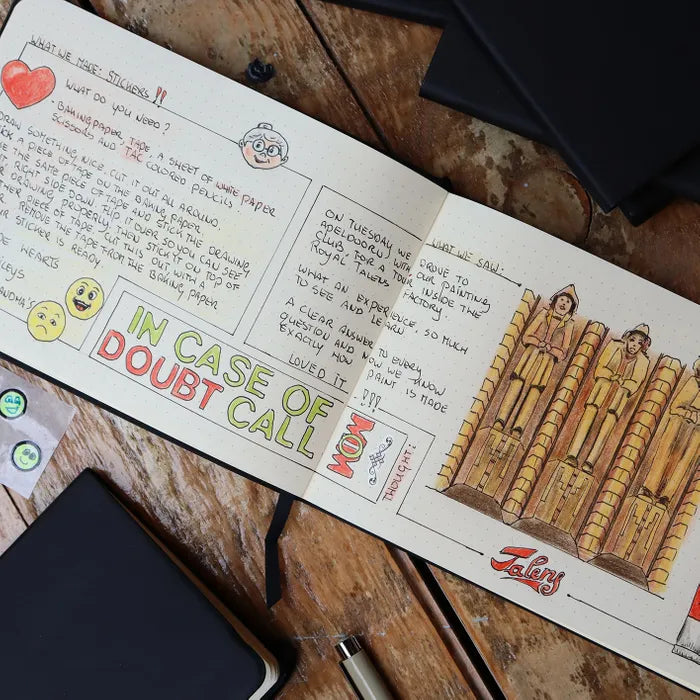 WHAT WE MADE: STICKERS !!
WHAT DO YOU NEED?
- BAKINGPAPER, TAPE, A SHEET OF WHITE PAPER
SCISSORS AND TAC COLORED PENCILS.
DRAW SOMETHING NICE. CUT IT OUT ALL AROUND.
A PIECE OF TAPE ON THE BAKING PAPER
THE SAME PIECE OF TAPE AND STICK THE DRAWING
RIGHT SIDE DOWN. FLIP IT OVER SO YOU CAN SEE
DRAWING PROPERLY, THEN STICK IT ON TOP OF
PIECE OF TAPE. CUT THIS OUT WITH A
REMOVE THE TAPE FROM THE BAKING PAPER
STICKER IS READY
HEARTS
IN CASE OF
DOUBT CALL
MOM
ON TUESDAY WE DROVE TO
APELDOORN WITH OUR PAINTING
CLUB FOR A TOUR INSIDE THE
ROYAL TALENS FACTORY.
WHAT AN EXPERIENCE, SO MUCH
TO SEE AND LEARN
A CLEAR ANSWER TO EVERY
QUESTION AND NOW WE KNOW
EXACTLY HOW PAINT IS MADE
LOVED IT !!!
THOUGHT:
WHAT WE SAW:
Talens